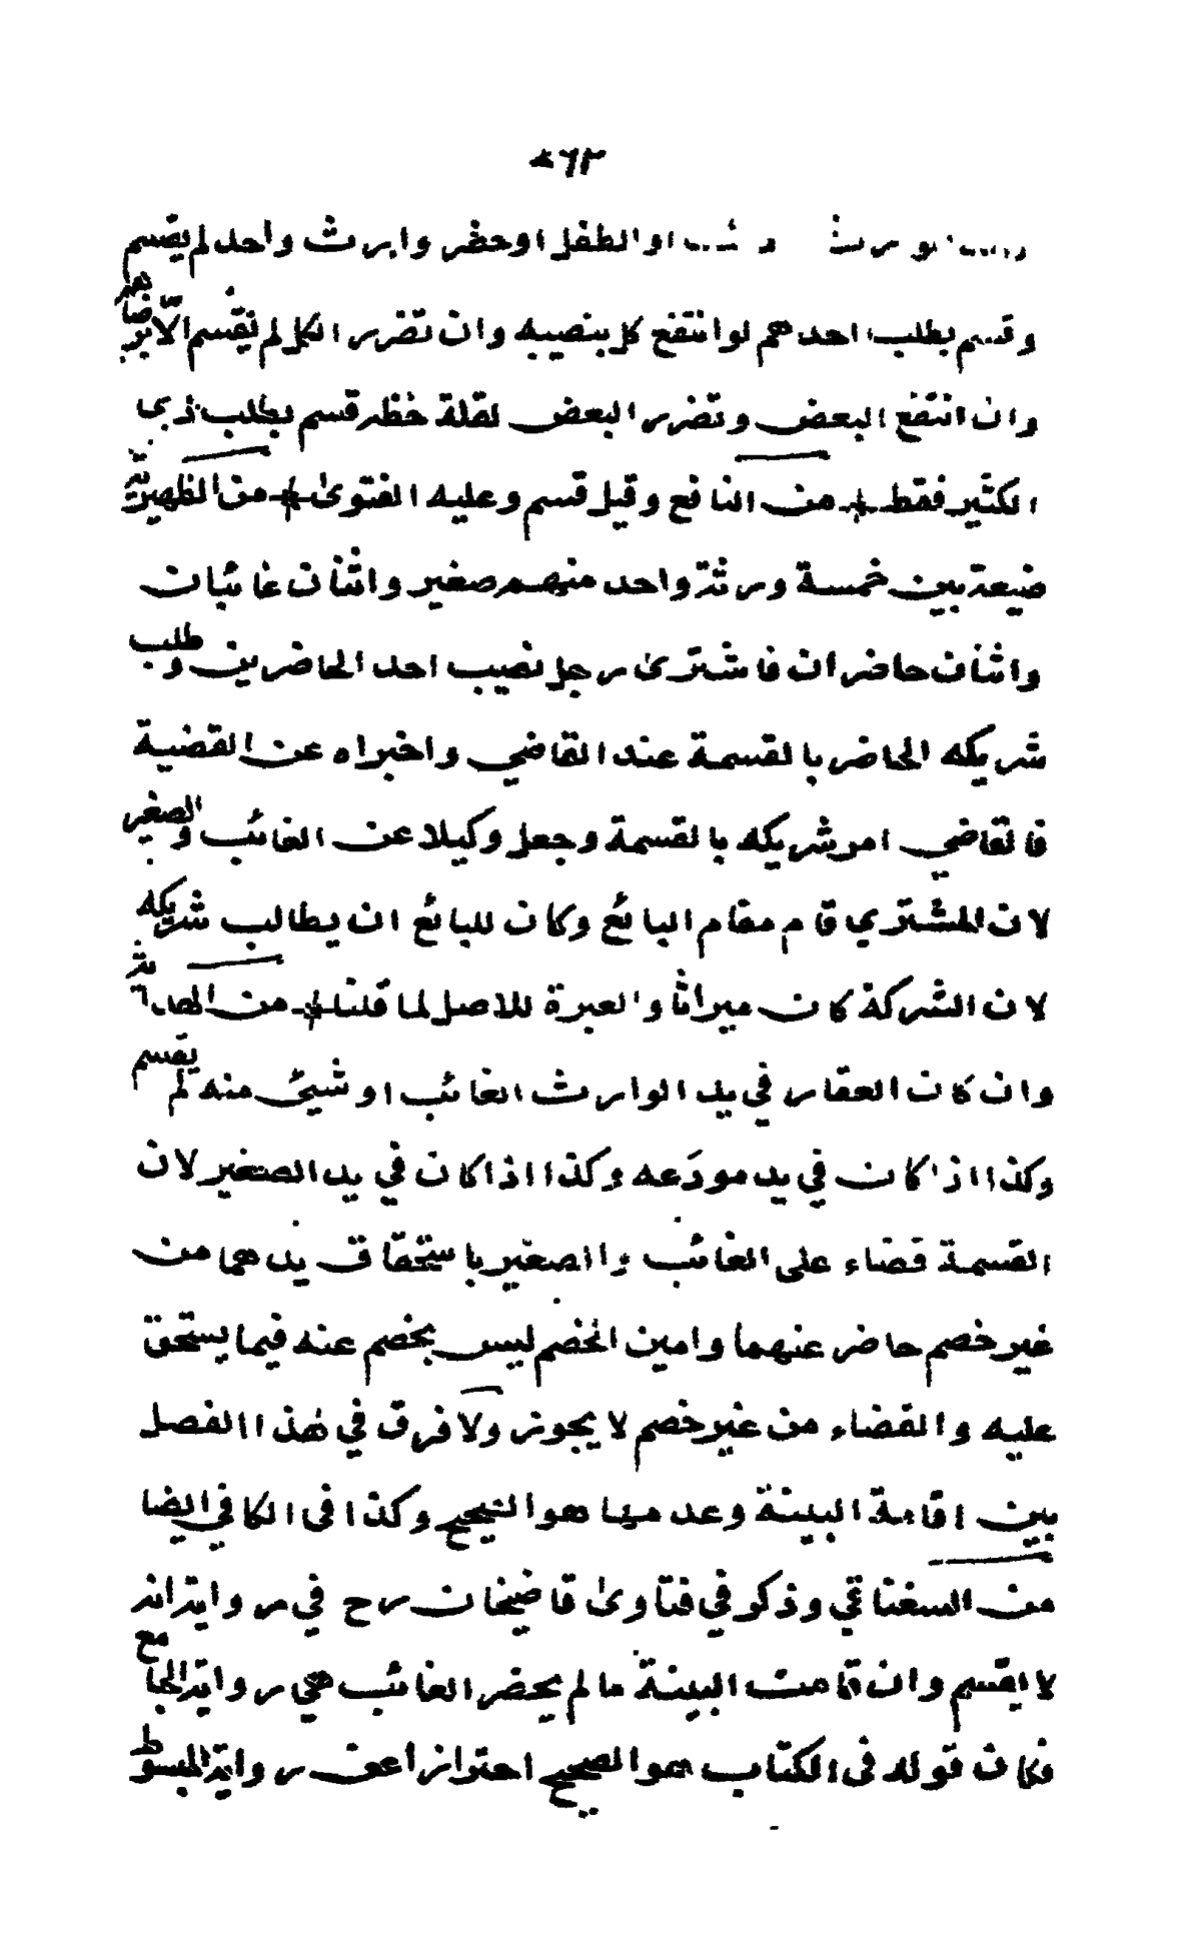 او الطفل او حضر وارث واحد لم يقسم
وقسم بطلب احدهم لو انتفع كل بنصيبه وان تضرر الكل لم يقسم الّا برضاهم
وان انتفع البعض وتضرر البعض لقلة حظه قسم بطلب ذي
الكثير فقط من النافع وقيل قسم وعليه الفتوى من الظهيرية
ضيعة بين خمسة ورثة واحد منهم صغير واثنان غائبان
واثنان حاضران فاشترى رجل نصيب احد الحاضرين وطلب
شريكه الحاضر بالقسمة عند القاضي واخبراه عن القضية
فالقاضي امر شريكه بالقسمة وجعل وكيلا عن الغائب والصغير
لان المشتري قام مقام البائع وكان للبائع ان يطالب شريكه
لان الشركة كان ميراثا والعبرة للاصل لما قلنا من
وان كان العقار في يد الوارث الغائب او شيئ منه لم يقسم
وكذا اذا كان في يد مودَعه وكذا اذا كان في يد الصغير لان
القسمة قضاء على الغائب والصغير باستحقاق يدهما من
غير خصم حاضر عنهما وامين الخصم ليس بخصم عنه فيما يستحق
عليه والقضاء من غير خصم لا يجوز ولا فرق في هذا الفصل
بين اقامة البينة وعدمها هو الصحيح وكذا فى الكافي ايضا
من السغناقي وذكر في فتاوى قاضيخان رح في رواية انه
لا يقسم وان قامت البينة ما لم يحضر الغائب هي رواية الجامع
فكان قوله فى الكتاب هو الصحيح احترازا عن رواية المبسوط